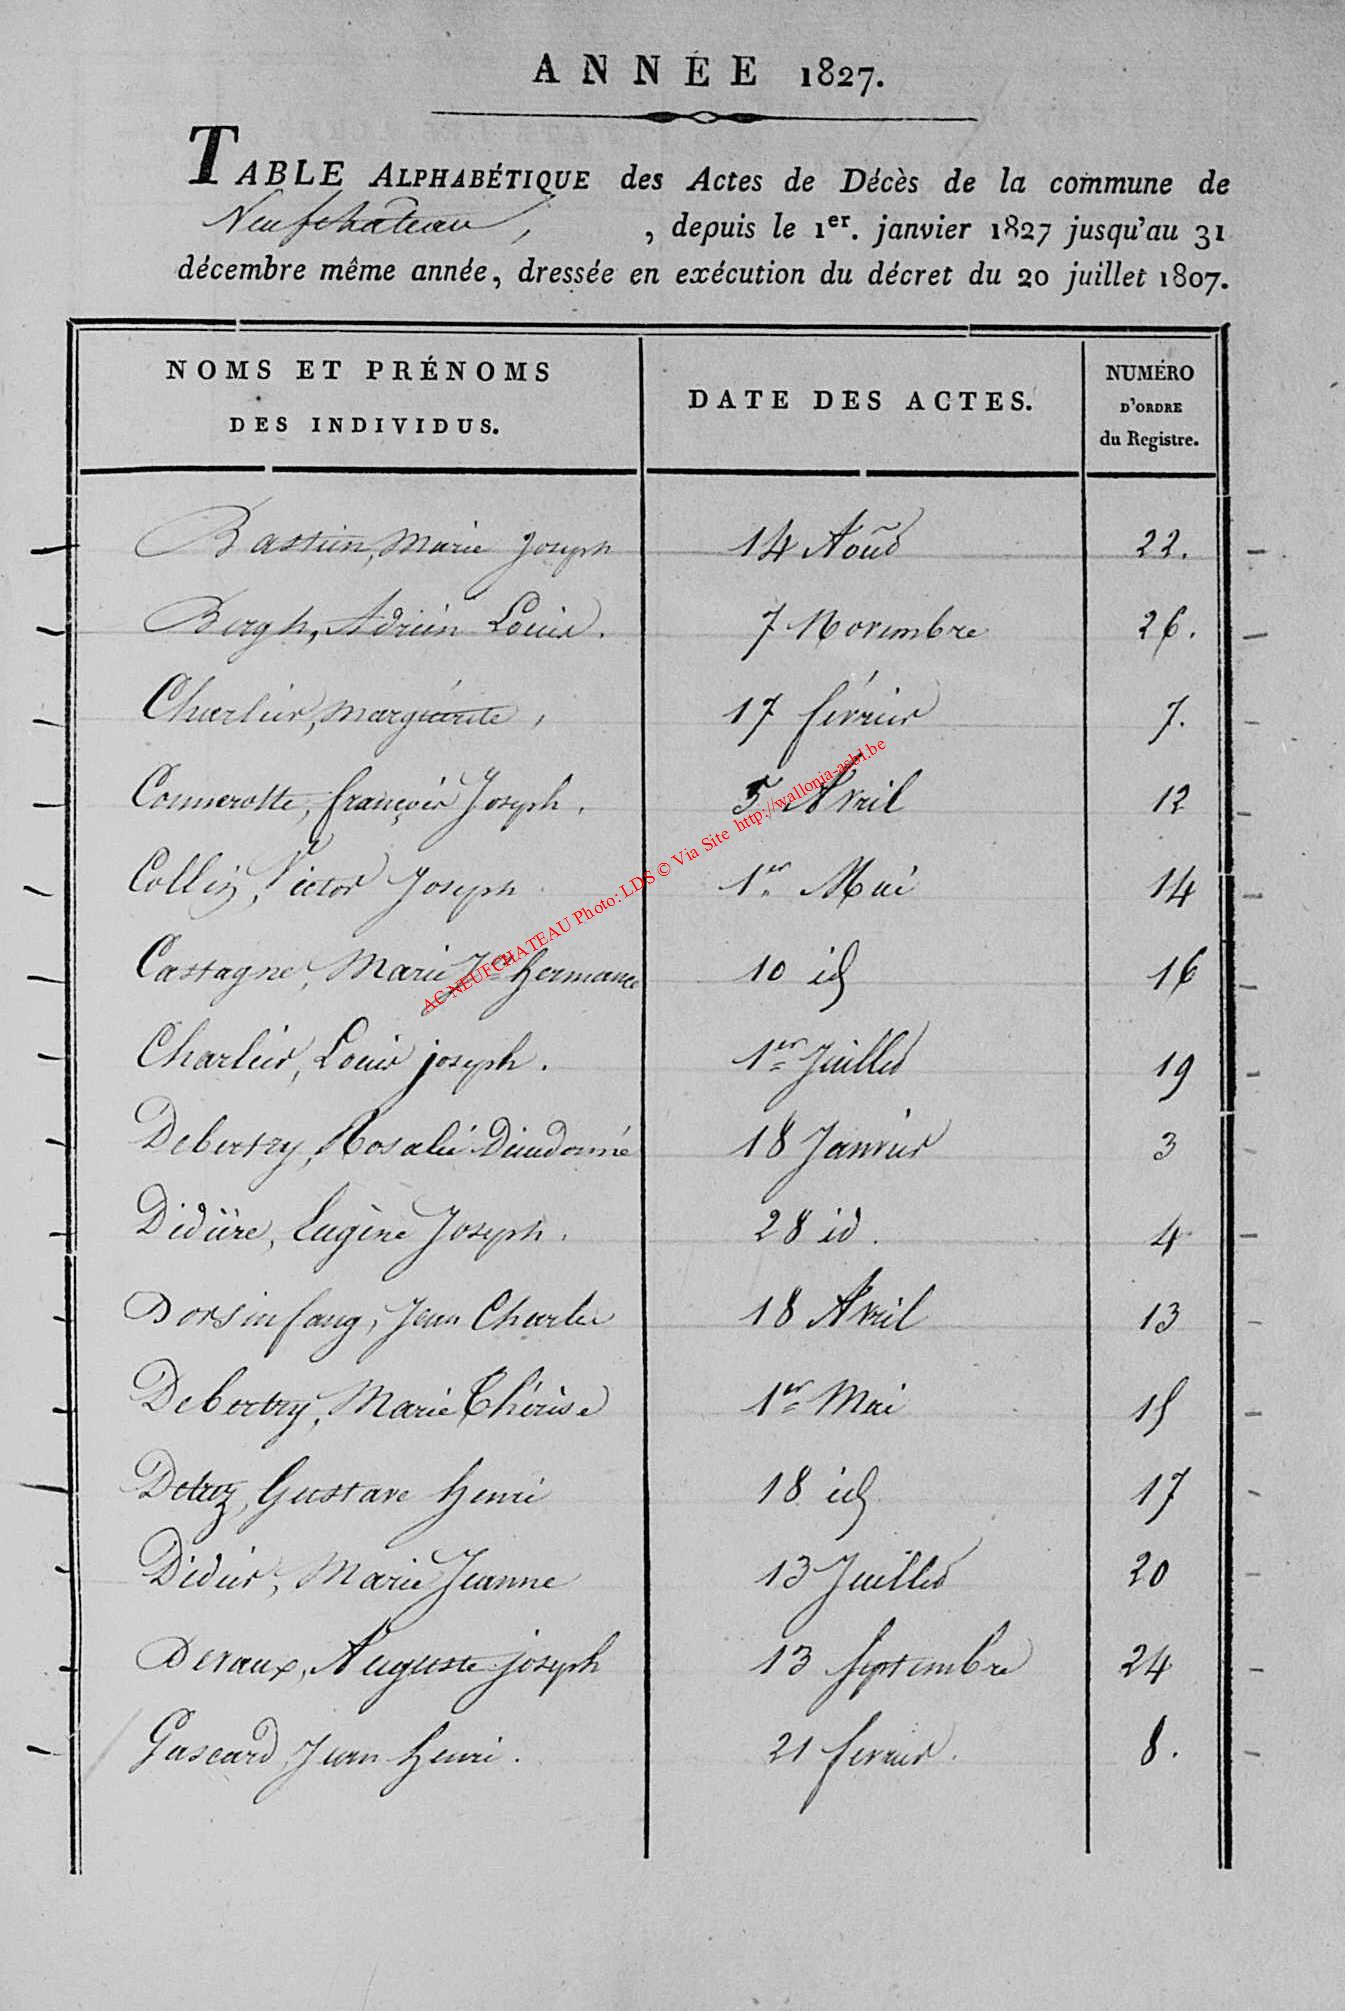 ANNÉE 1827.
TABLE ALPHABÉTIQUE des Actes de Décès de la commune de
Neufchateau, , depuis le 1er. janvier 1827 jusqu'au 31
décembre même année, dressée en exécution du décret du 20 juillet 1807.
NOMS ET PRÉNOMS
DES INDIVIDUS.
DATE DES ACTES.
NUMÉRO
D'ORDRE
du Registre.
Bastin, Marie Joseph 14 Août 22.
Bergh, Adrien Louis. 7 Novembre 26.
Charlier, Marguerite, 17 février 7.
Connerotte, françois Joseph. 5 Avril 12
Collin, Victor Joseph 1er Mai 14
Castagne, Marie Hermance 10 id 16
Charlier, Louis joseph. 1er Juillet 19
Debertry, Rosalie Dieudonné 18 Janvier 3
Didière, Eugène Joseph. 28 id. 4
Dorsinfang, Jean Charles 18 Avril 13
Debertry, Marie Thérèse 1er Mai 15
Gustave henri 18 id 17
Didier, Marie Jeanne 13 Juillet 20
Devaux, Auguste joseph 13 Septembre 24
Gascard Jean henri. 21 fevrier. 8.
AC NEUFCHATEAU Photo: LDS © Via Site http://wallonia-asbl.be